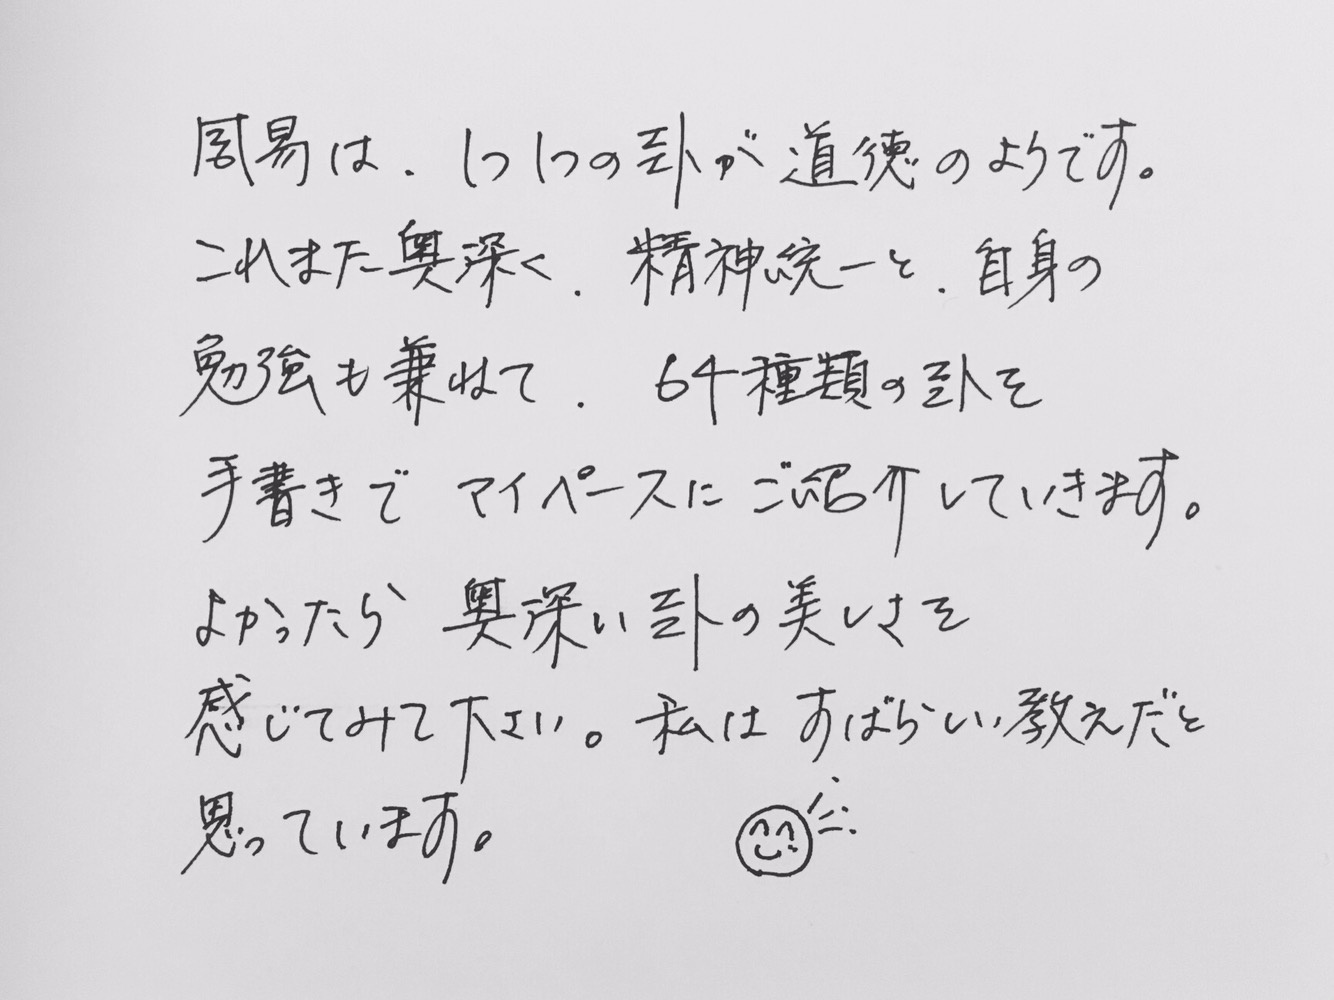 周易は、1つ1つの卦が道徳のようです。
これまた奥深く、精神統一と、自身の
勉強も兼ねて、64種類の卦を
手書きでマイペースにご紹介していきます。
よかったら奥深い卦の美しさを
感じてみて下さい。私はすばらしい教えだと
思っています。